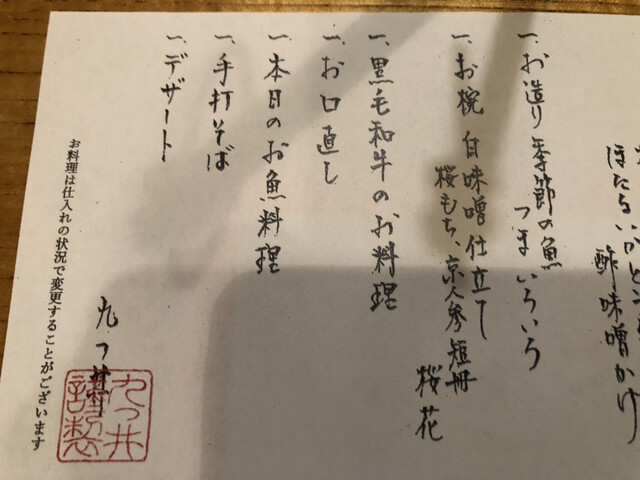 ほたるいか
酢味噌かけ
一、お造り 季節の魚
つまいろいろ
一、お椀 白味噌仕立て
桜もち、京人参短冊
桜花
一、黒毛和牛のお料理
一、お口直し
一、本日のお魚料理
一、手打そば
一、デザート
お料理は仕入れの状況で変更することがございます
九つ井
九つ井
謹製